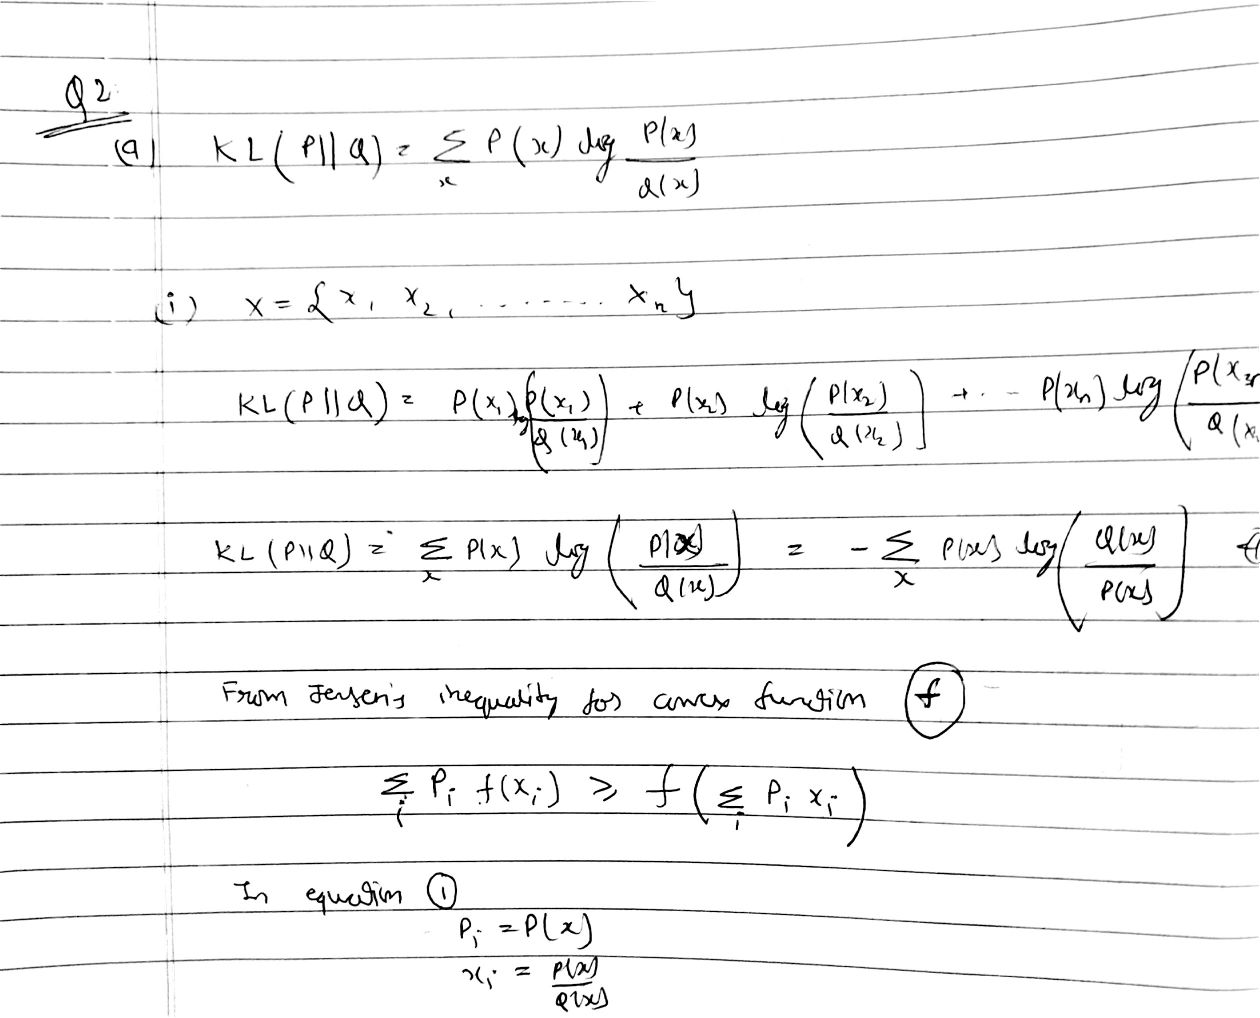 Q2
(a) KL(P||Q) = Σ_x P(x) log P(x)/Q(x)
(i) X = {x₁ x₂, ........ xₙ}
KL(P||Q) = P(x₁) log(P(x₁)/Q(x₁)) + P(x₂) log(P(x₂)/Q(x₂)) + .. - P(xₙ) log(P(xₙ/Q(x
KL(P||Q) = Σ_x P(x) log(P(x)/Q(x)) = - Σ_x P(x) log(Q(x)/P(x))
From Jensen's inequality for convex function f
Σ_i P_i f(x_i) ≥ f(Σ_i P_i x_i)
In equation ①
P_i = P(x)
x_i = P(x)/Q(x)